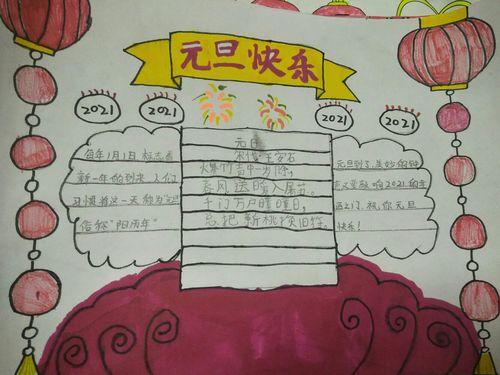 元旦快乐
2021
2021
2021
2021
每年1月1日标志着
新一年的到来,人们
习惯将这一天称为"元旦"
俗称"阳历年"
元旦
宋代 王安石
爆竹声中一岁除,
春风送暖入屠苏。
千门万户曈曈日,
总把新桃换旧符。
元旦到了,美妙的钟
敲响2021的幸
之门,祝你元旦
快乐!